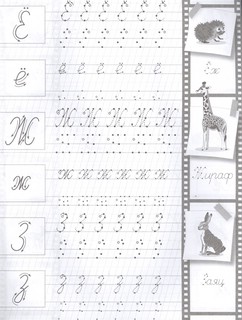 Ё Ё Ё Ё Ё Ё Ё
ё ё ё ё ё ё ё Ёж
Ж Ж Ж Ж Ж Ж Ж
ж ж ж ж ж ж ж Жираф
З З З З З З З
з з з з з з з Заяц